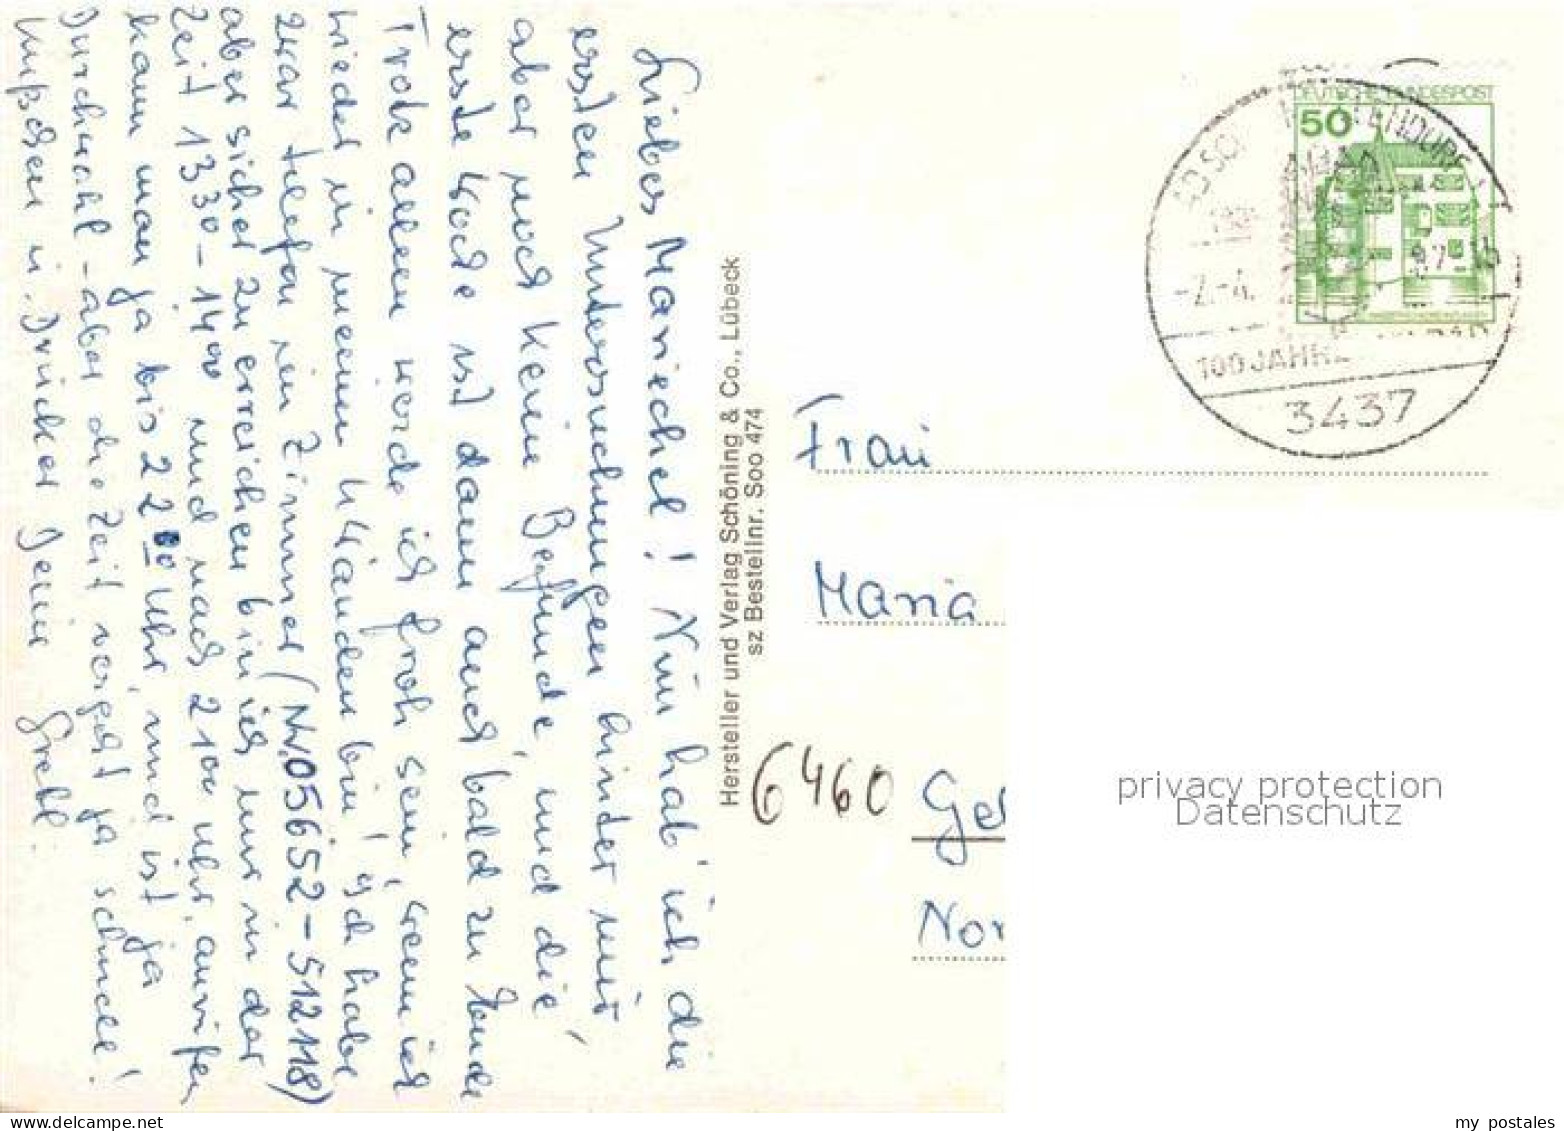 Liebes Mariechel! Nun hab' ich die
ersten Untersuchungen hinter mir
aber noch keine Befunde, und die
erste Woche ist dann auch bald zu Ende
Trotz allem werde ich froh sein, wenn ich
wieder in meinen 4 Wänden bin! Ich habe
zwar Telefon im Zimmer (Nr. 05652-512118)
aber sicher zu erreichen bin ich nur in der
Zeit 13 30 - 14 00 und nach 21 00 Uhr, anrufen
kann man ja bis 22 00 Uhr, und ist ja
Durchwahl - aber die Zeit vergeht ja schnell!
Küßchen u. Drücker Deine
Gretl
Hersteller und Verlag Schöning & Co., Lübeck
sz Bestellnr. Soo 474
DEUTSCHE BUNDESPOST
50
100 JAHRE
3437
Frau
Maria
6460 Gel
Nor
privacy protection
Datenschutz
my postales